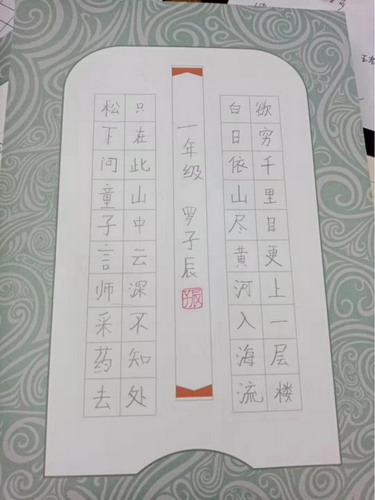 松下问童子言师采药去
只在此山中云深不知处
一年级 罗子辰
白日依山尽黄河入海流
欲穷千里目更上一层楼